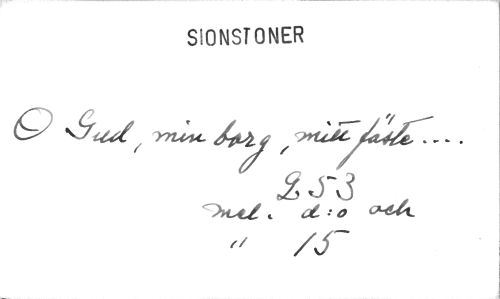 SIONSTONER
O Gud, min borg, mitt fäste....
253
mel. d:o och
" 15